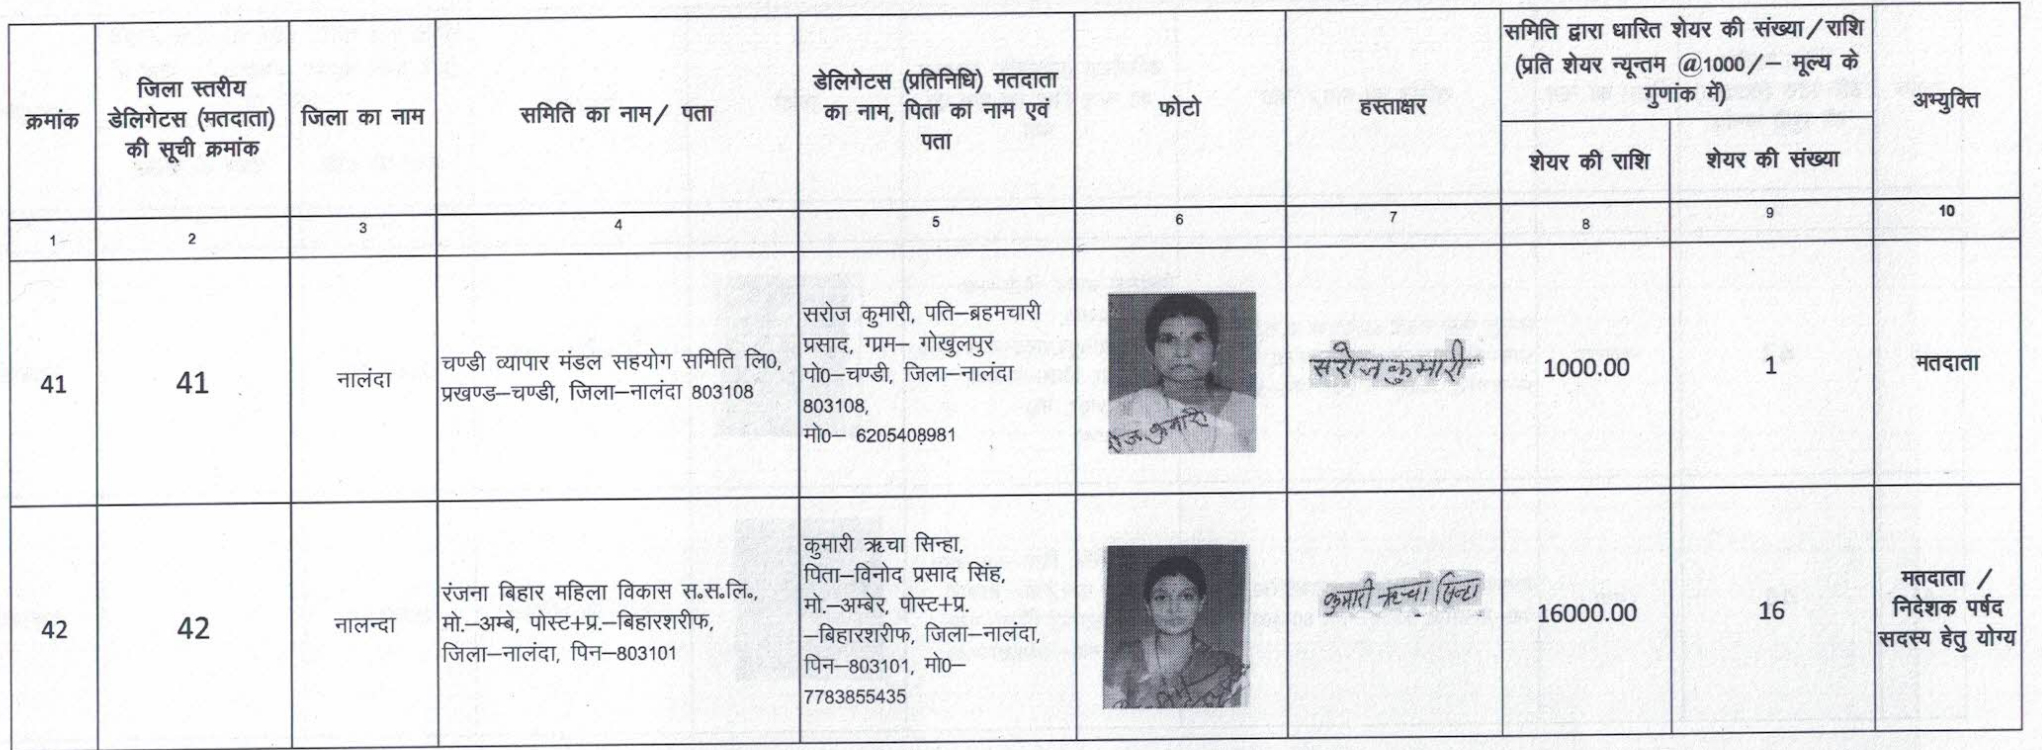 क्रमांक
जिला स्तरीय
डेलिगेटस (मतदाता)
की सूची क्रमांक
जिला का नाम
समिति का नाम/ पता
डेलिगेटस (प्रतिनिधि) मतदाता
का नाम, पिता का नाम एवं
पता
फोटो
हस्ताक्षर
समिति द्वारा धारित शेयर की संख्या/राशि
(प्रति शेयर न्यून्तम @1000/– मूल्य के
गुणांक में)
शेयर की राशि
शेयर की संख्या
अभ्युक्ति
1
2
3
4
5
6
7
8
9
10
41
41
नालंदा
चण्डी व्यापार मंडल सहयोग समिति लि0,
प्रखण्ड–चण्डी, जिला–नालंदा 803108
सरोज कुमारी, पति–ब्रहमचारी
प्रसाद, ग्रम– गोखुलपुर
पो0–चण्डी, जिला–नालंदा
803108,
मो0– 6205408981
कुमारी
सरोज कुमारी
1000.00
1
मतदाता
42
42
नालन्दा
रंजना बिहार महिला विकास स.स.लि.,
मो.–अम्बे, पोस्ट+प्र.–बिहारशरीफ,
जिला–नालंदा, पिन–803101
कुमारी ऋचा सिन्हा,
पिता–विनोद प्रसाद सिंह,
मो.–अम्बेर, पोस्ट+प्र.
–बिहारशरीफ, जिला–नालंदा,
पिन–803101, मो0–
7783855435
कुमारी ऋचा सिन्हा
16000.00
16
मतदाता /
निदेशक पर्षद
सदस्य हेतु योग्य